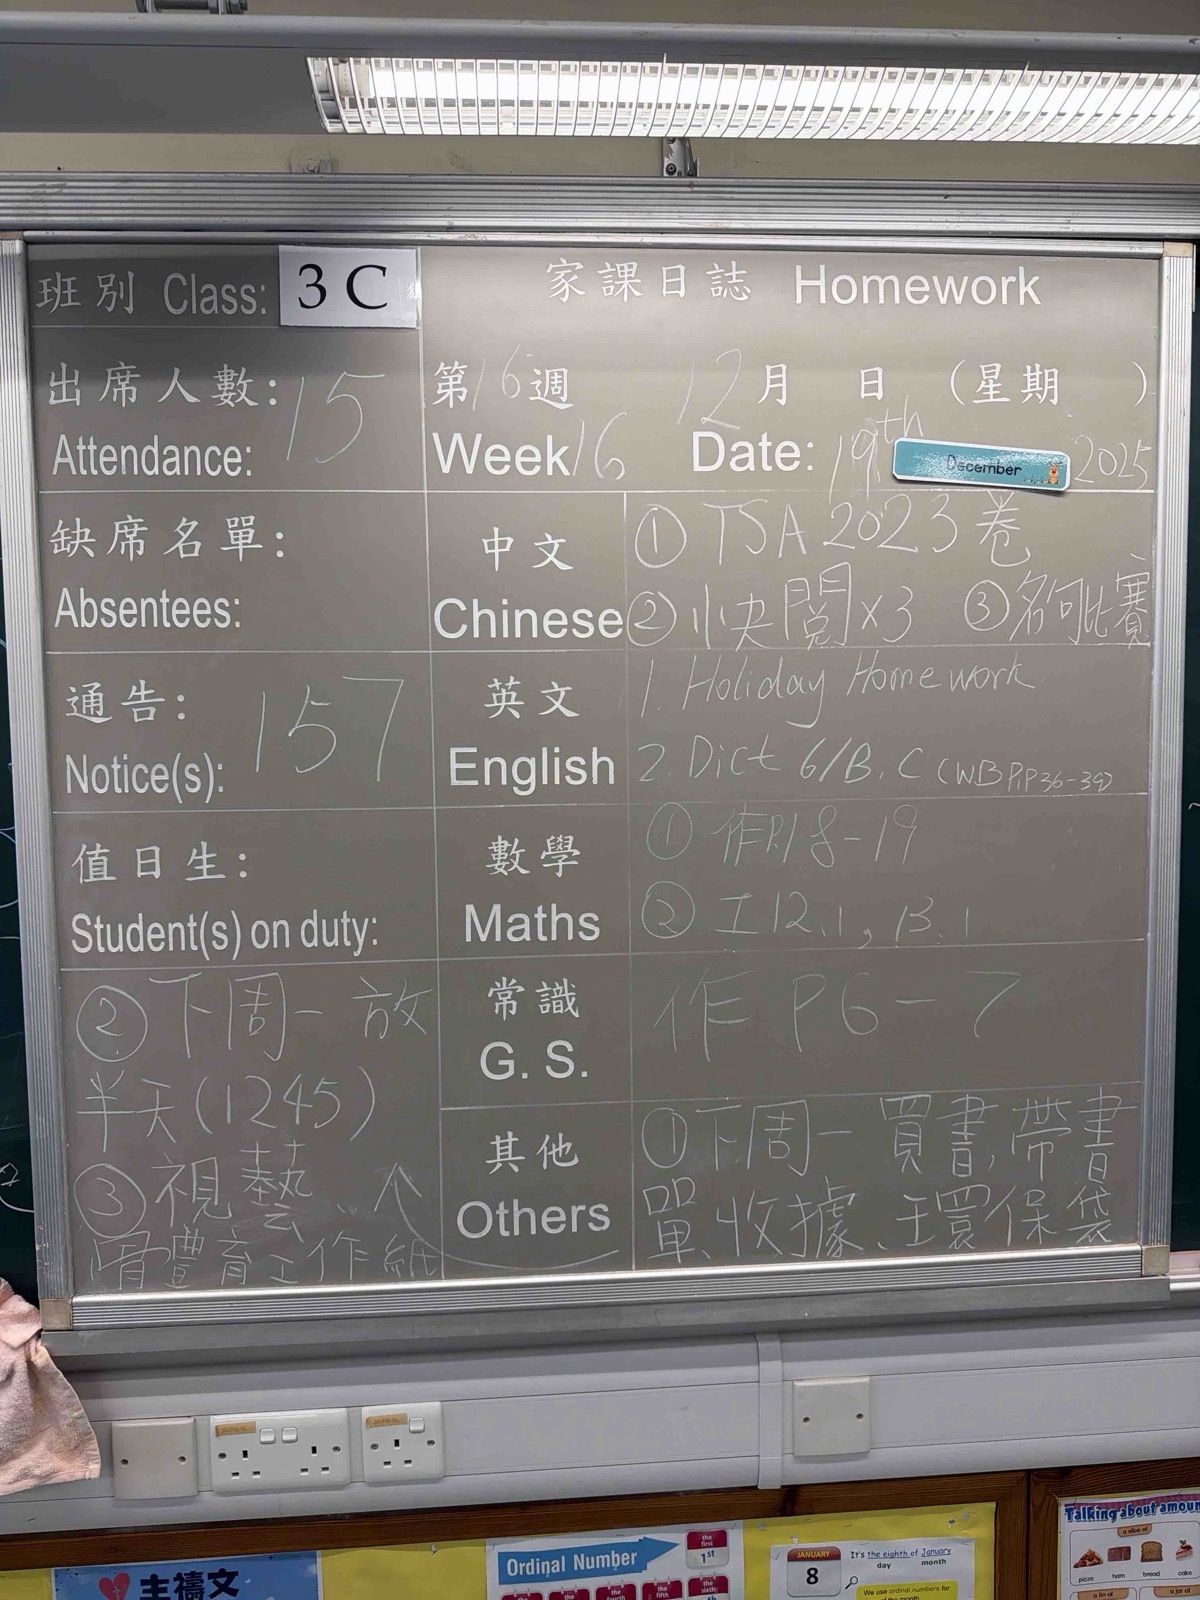 班別 Class: 3C
家課日誌 Homework
出席人數: 15
Attendance:
第16週 12月 日 (星期 )
Week 16 Date: 19th December 2025
缺席名單:
Absentees:
中文
Chinese
① TSA 2023 卷
② 小夾閱x3 ③名句比賽
通告: 157
Notice(s):
英文
English
1. Holiday Homework
2. Dict 6/B. C (WB PP36-39)
值日生:
Student(s) on duty:
數學
Maths
① 作P.18-19
② 工12.1, 13.1
② 下周一 放
半天(1245)
③ 視藝、
體育工作紙
常識
G. S.
作 P6-7
其他
Others
①下周一買書,帶書
單、收據、環保袋
Ordinal Number
the first
1st
the fourth
the sixth
JANUARY
8
It's the eighth of January
day month
We use ordinal numbers for
Talking about amoun
a slice of
pizza ham bread cake
a tin of
a jar of
主禱文